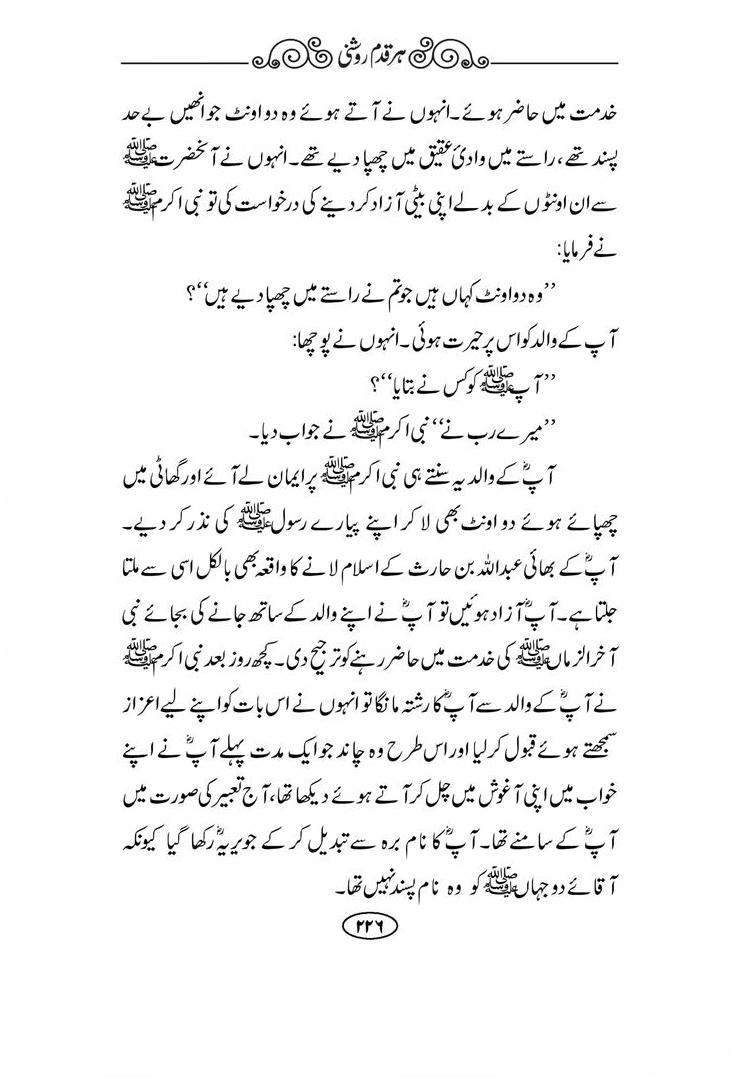 ہر قدم روشنی
خدمت میں حاضر ہوئے۔ انہوں نے آتے ہوئے وہ دو اونٹ جو انھیں بے حد
پسند تھے، راستے میں وادیٔ عقیق میں چھپا دیے تھے۔ انہوں نے آنحضرت ﷺ
سے ان اونٹوں کے بدلے اپنی بیٹی آزاد کر دینے کی درخواست کی تو نبی اکرم ﷺ
نے فرمایا:
’’وہ دو اونٹ کہاں ہیں جو تم نے راستے میں چھپا دیے ہیں‘‘؟
آپ کے والد کو اس پر حیرت ہوئی۔ انہوں نے پوچھا:
’’آپ ﷺ کو کس نے بتایا‘‘؟
’’میرے رب نے‘‘ نبی اکرم ﷺ نے جواب دیا۔
آپؓ کے والد یہ سنتے ہی نبی اکرم ﷺ پر ایمان لے آئے اور گھاٹی میں
چھپائے ہوئے دو اونٹ بھی لا کر اپنے پیارے رسول ﷺ کی نذر کر دیے۔
آپؓ کے بھائی عبداللہ بن حارث کے اسلام لانے کا واقعہ بھی بالکل اسی سے ملتا
جلتا ہے۔ آپؓ آزاد ہوئیں تو آپؓ نے اپنے والد کے ساتھ جانے کی بجائے نبی
آخر الزماں ﷺ کی خدمت میں حاضر رہنے کو ترجیح دی۔ کچھ روز بعد نبی اکرم ﷺ
نے آپؓ کے والد سے آپؓ کا رشتہ مانگا تو انہوں نے اس بات کو اپنے لیے اعزاز
سمجھتے ہوئے قبول کر لیا اور اس طرح وہ چاند جو ایک مدت پہلے آپؓ نے اپنے
خواب میں اپنی آغوش میں چل کر آتے ہوئے دیکھا تھا، آج تعبیر کی صورت میں
آپؓ کے سامنے تھا۔ آپؓ کا نام برہ سے تبدیل کر کے جویریہؓ رکھا گیا کیونکہ
آقائے دو جہاں ﷺ کو وہ نام پسند نہیں تھا۔
۲۲۶